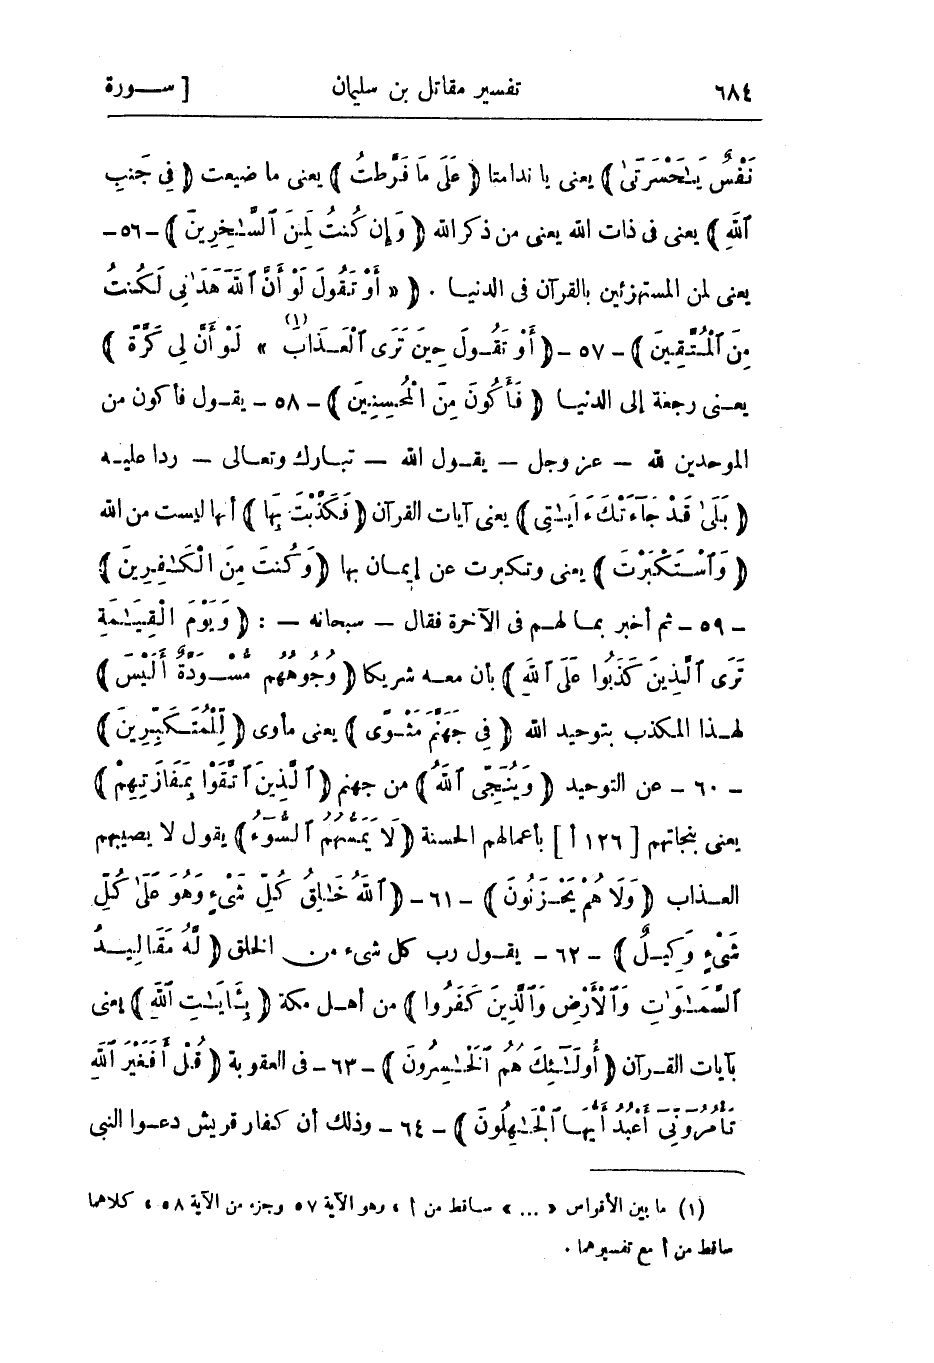 ٦٨٤ تفسير مقاتل بن سليمان [ ســورة
نَفْسٌ يَـٰحَسْرَتَىٰ ) يعنى يا ندامتا ( عَلَىٰ مَا فَرَّطتُ ) يعنى ما ضيعت ( فِى جَنۢبِ
ٱللَّهِ ) يعنى فى ذات الله يعنى من ذكر الله ( وَإِن كُنتُ لَمِنَ ٱلسَّـٰخِرِينَ ) - ٥٦ -
يعنى لمن المستهزئين بالقرآن فى الدنيـا . ( « أَوْ تَقُولَ لَوْ أَنَّ ٱللَّهَ هَدَىٰنِى لَكُنتُ
مِنَ ٱلْمُتَّقِينَ ) - ٥٧ - ( أَوْ تَقُـولَ حِينَ تَرَى ٱلْعَـذَابَ » (١) لَوْ أَنَّ لِى كَرَّةً )
يعـنى رجعة إلى الدنيـا ( فَأَكُونَ مِنَ الْمُحْسِنِينَ ) - ٥٨ - يقـول فأكون من
الموحدين لله — عز وجل — يقـول الله — تبـارك وتعـالى — ردا عليـه
( بَلَىٰ قَدْ جَآءَتْكَ ءَايَـٰتِى ) يعنى آيات القرآن ( فَكَذَّبْتَ بِهَا ) أنها ليست من الله
( وَٱسْتَكْبَرْتَ ) يعنى وتكبرت عن إيمـان بها ( وَكُنتَ مِنَ الْكَـٰفِرِينَ )
- ٥٩ - ثم أخبر بمـا لهـم فى الآخرة فقال — سبحانه — : ( وَيَوْمَ الْقِيَـٰمَةِ
تَرَى ٱلَّذِينَ كَذَبُوا عَلَى ٱللَّهِ ) بأن معـه شريكا ( وُجُوهُهُم مُّسْـوَدَّةٌ أَلَيْسَ )
لهـذا المكذب بتوحيد الله ( فِى جَهَنَّمَ مَثْـوًى ) يعنى مأوى ( لِّلْمُتَـكَبِّرِينَ )
- ٦٠ - عن التوحيد ( وَيُنَجِّى ٱللَّهُ ) من جهنم ( ٱلَّذِينَ ٱتَّقَوْا بِمَفَازَتِهِمْ )
يعنى بنجاتهم [ ١٢٦ أ ] بأعمالهم الحسنة ( لَا يَمَسُّهُمُ ٱلسُّوٓءُ ) يقول لا يصيبهم
العـذاب ( وَلَا هُمْ يَحْـزَنُونَ ) - ٦١ - ( ٱللَّهُ خَـٰلِقُ كُلِّ شَىْءٍ وَهُوَ عَلَىٰ كُلِّ
شَىْءٍ وَكِيـلٌ ) - ٦٢ - يقـول رب كل شىء من الخلق ( لَّهُ مَقَالِيـدُ
ٱلسَّمَـٰوَٰتِ وَٱلْأَرْضِ وَٱلَّذِينَ كَفَرُوا ) من أهـل مكة ( بِـَٔايَـٰتِ ٱللَّهِ ) يعنى
بآيات القـرآن ( أُولَـٰئِكَ هُمُ ٱلْخَـٰسِرُونَ ) - ٦٣ - فى العقوبة ( قُلْ أَفَغَيْرَ ٱللَّهِ
تَأْمُرُوٓنِّىٓ أَعْبُدُ أَيُّهَـا ٱلْجَـٰهِلُونَ ) - ٦٤ - وذلك أن كفار قريش دعـوا النبى
(١) ما بين الأقواس « ... » سـاقط من أ ، وهو الآية ٥٧ وجزء من الآية ٥٨ ، كلاهما
ساقط من أ مع تفسيرهما .